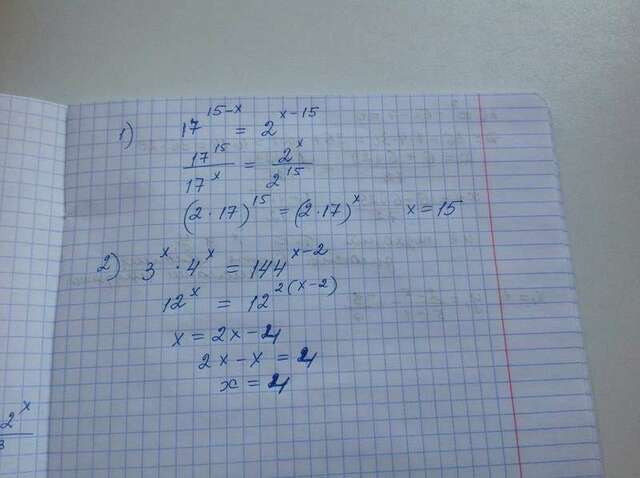 1) 17^{15-x} = 2^{x-15}
17^{15}/17^x = 2^x/2^{15}
(2·17)^{15} = (2·17)^x x = 15
2) 3^x · 4^x = 144^{x-2}
12^x = 12^{2(x-2)}
x = 2x - 4
2x - x = 4
x = 4
2^x